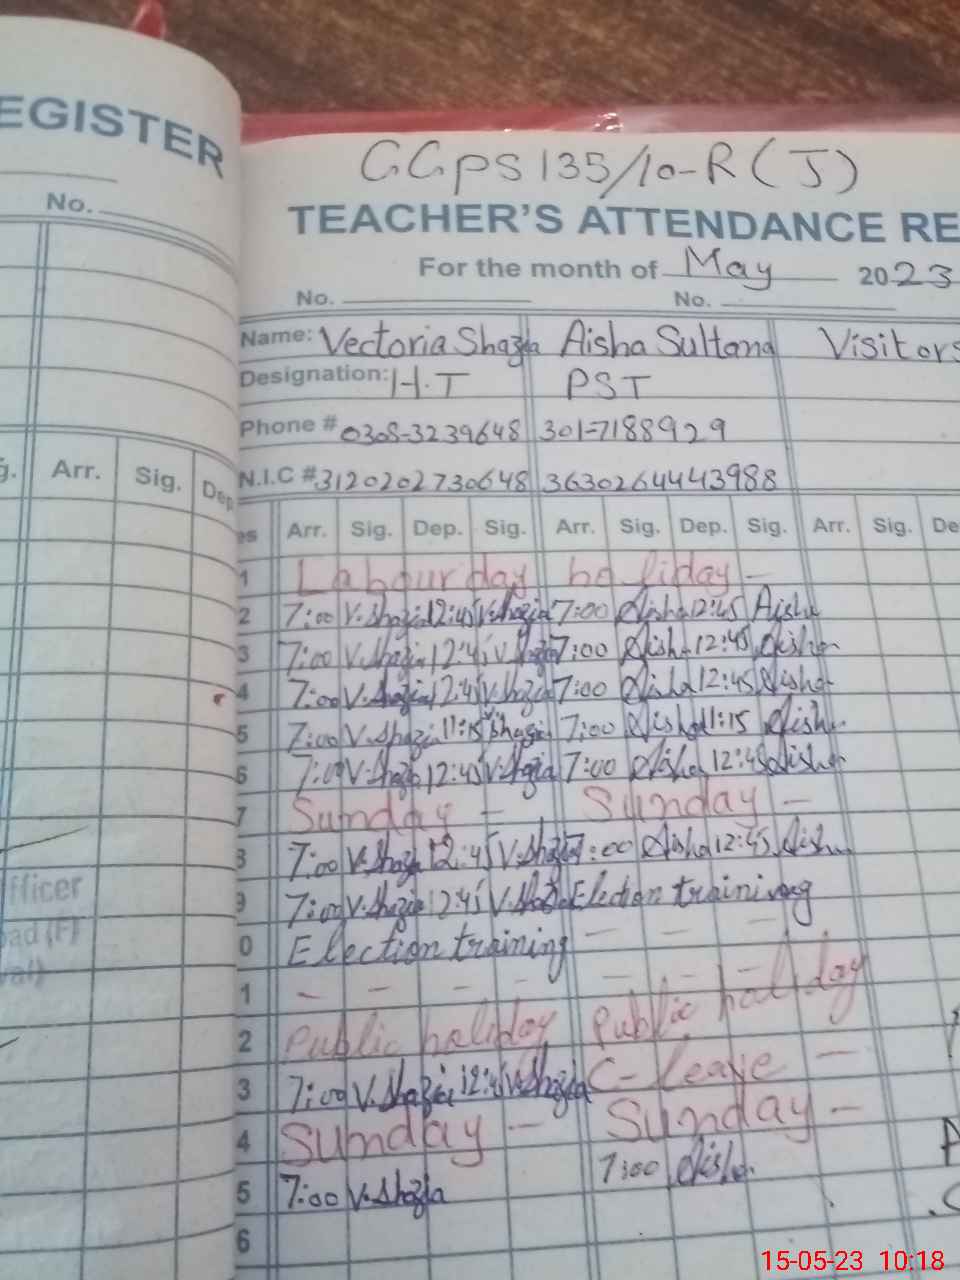 EGISTER
No.
g. Arr. Sig. Dep
fficer
ad (F)
GGPS 135/10-R (J)
TEACHER'S ATTENDANCE RE
For the month of May 2023
No. No.
Name: Vectoria Shazia Aisha Sultana Visitors
Designation: H.T PST
Phone # 0308-3239648 301-7188929
N.I.C # 3120202730648 3630264443988
es Arr. Sig. Dep. Sig. Arr. Sig. Dep. Sig. Arr. Sig. De
1 Labour day holiday -
2 7:00 V.Shazia 12:45 V.Shazia 7:00 Aisha 12:45 Aisha
3 7:00 V.Shazia 12:45 V.Shazia 7:00 Aisha 12:45 Aisha
4 7:00 V.Shazia 12:45 V.Shazia 7:00 Aisha 12:45 Aisha
5 7:00 V.Shazia 11:15 V.Shazia 7:00 Aisha 11:15 Aisha
6 7:00 V.Shazia 12:45 V.Shazia 7:00 Aisha 12:45 Aisha
7 Sunday - Sunday -
8 7:00 V.Shazia 12:45 V.Shazia 7:00 Aisha 12:45 Aisha
9 7:00 V.Shazia 12:45 V.Shazia Election training
0 Election training - - - -
1 - - - - - - -
2 Public holiday Public holiday
3 7:00 V.Shazia 12:45 V.Shazia C-leave -
4 Sunday - Sunday -
5 7:00 V.Shazia 7:00 Aisha
6
15-05-23 10:18